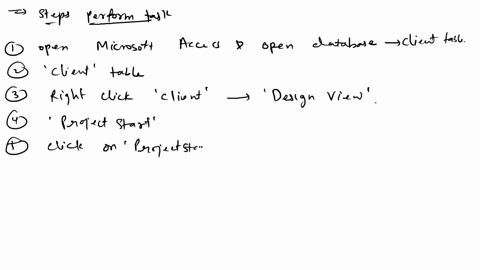 → Steps perform task
① open Microsoft Access & open database → Client task.
② 'Client' table
③ Right click 'Client' → 'Design View'.
④ 'Project Start'
⑤ click on 'Project Sta